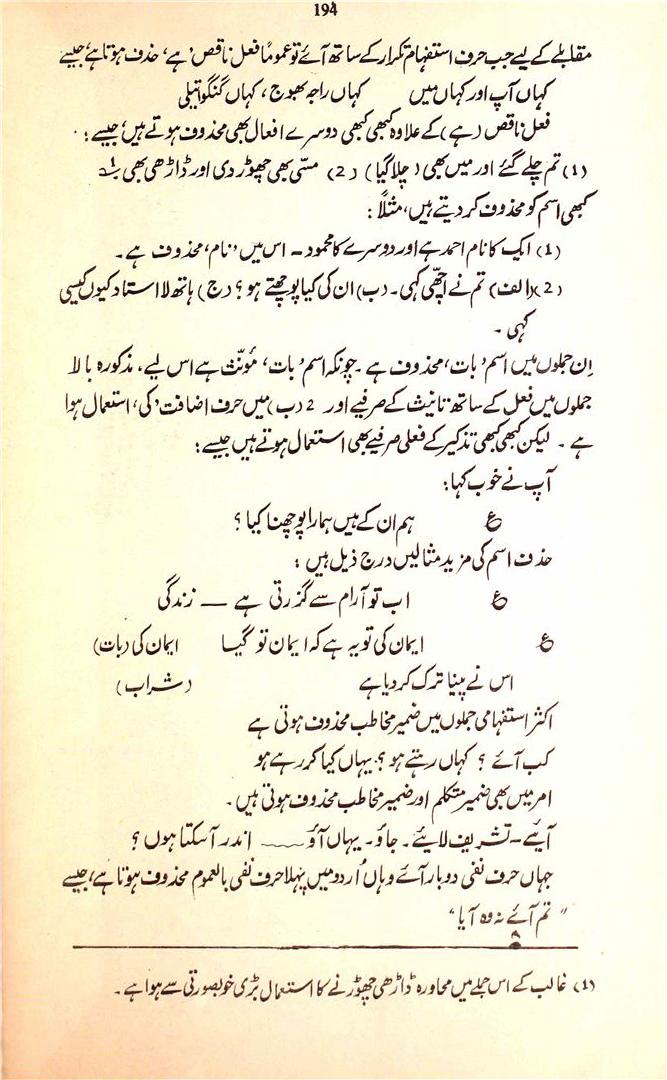 194
مقابلے کے لیے جب حرف استفہام تکرار کے ساتھ آئے تو عموماً فعل ناقص 'ہے' حذف ہوتا ہے، جیسے
کہاں آپ اور کہاں میں کہاں راجہ بھوج، کہاں گنگو تیلی
فعل ناقص (ہے) کے علاوہ کبھی کبھی دوسرے افعال بھی محذوف ہوتے ہیں، جیسے:
(1) تم چلے گئے اور میں بھی (چلا گیا) (2) مسّی بھی چھوڑ دی اور ڈاڑھی بھی
کبھی اسم کو محذوف کر دیتے ہیں، مثلاً:
(1) ایک کا نام احمد ہے اور دوسرے کا محمود۔ اس میں 'نام' محذوف ہے۔
(2) (الف) تم نے اچھّی کہی۔ (ب) ان کی کیا پوچھتے ہو؟ (ج) ہاتھ لا استاد کیوں کیسی
کہی۔
اِن جملوں میں اسم 'بات' محذوف ہے۔ چونکہ اسم 'بات' مؤنّث ہے اس لیے، مذکورہ بالا
جملوں میں فعل کے ساتھ تانیث کے صرفیے اور 2 (ب) میں حرف اضافت 'کی' استعمال ہوا
ہے۔ لیکن کبھی کبھی تذکیر کے فعلی صرفیے بھی استعمال ہوتے ہیں جیسے:
آپ نے خوب کہا:
ع ہم ان کے ہیں ہمارا پوچھنا کیا؟
حذف اسم کی مزید مثالیں درج ذیل ہیں:
ع اب تو آرام سے گزرتی ہے — زندگی
ع ایمان کی تو یہ ہے کہ ایمان تو گیا ایمان کی (بات)
اس نے پینا ترک کر دیا ہے (شراب)
اکثر استفہامی جملوں میں ضمیر مخاطب محذوف ہوتی ہے
کب آئے؟ کہاں رہتے ہو؟ یہاں کیا کر رہے ہو
امر میں بھی ضمیر متکلم اور ضمیر مخاطب محذوف ہوتی ہیں۔
آیئے۔ تشریف لایئے۔ جاؤ۔ یہاں آؤ — اندر آ سکتا ہوں؟
جہاں حرف نفی دوبار آئے وہاں اُردو میں پہلا حرف نفی بالعموم محذوف ہوتا ہے، جیسے
"تم آئے نہ وہ آیا"
(1) غالب کے اس جملے میں محاورہ ڈاڑھی چھوڑنے کا استعمال بڑی خوبصورتی سے ہوا ہے۔